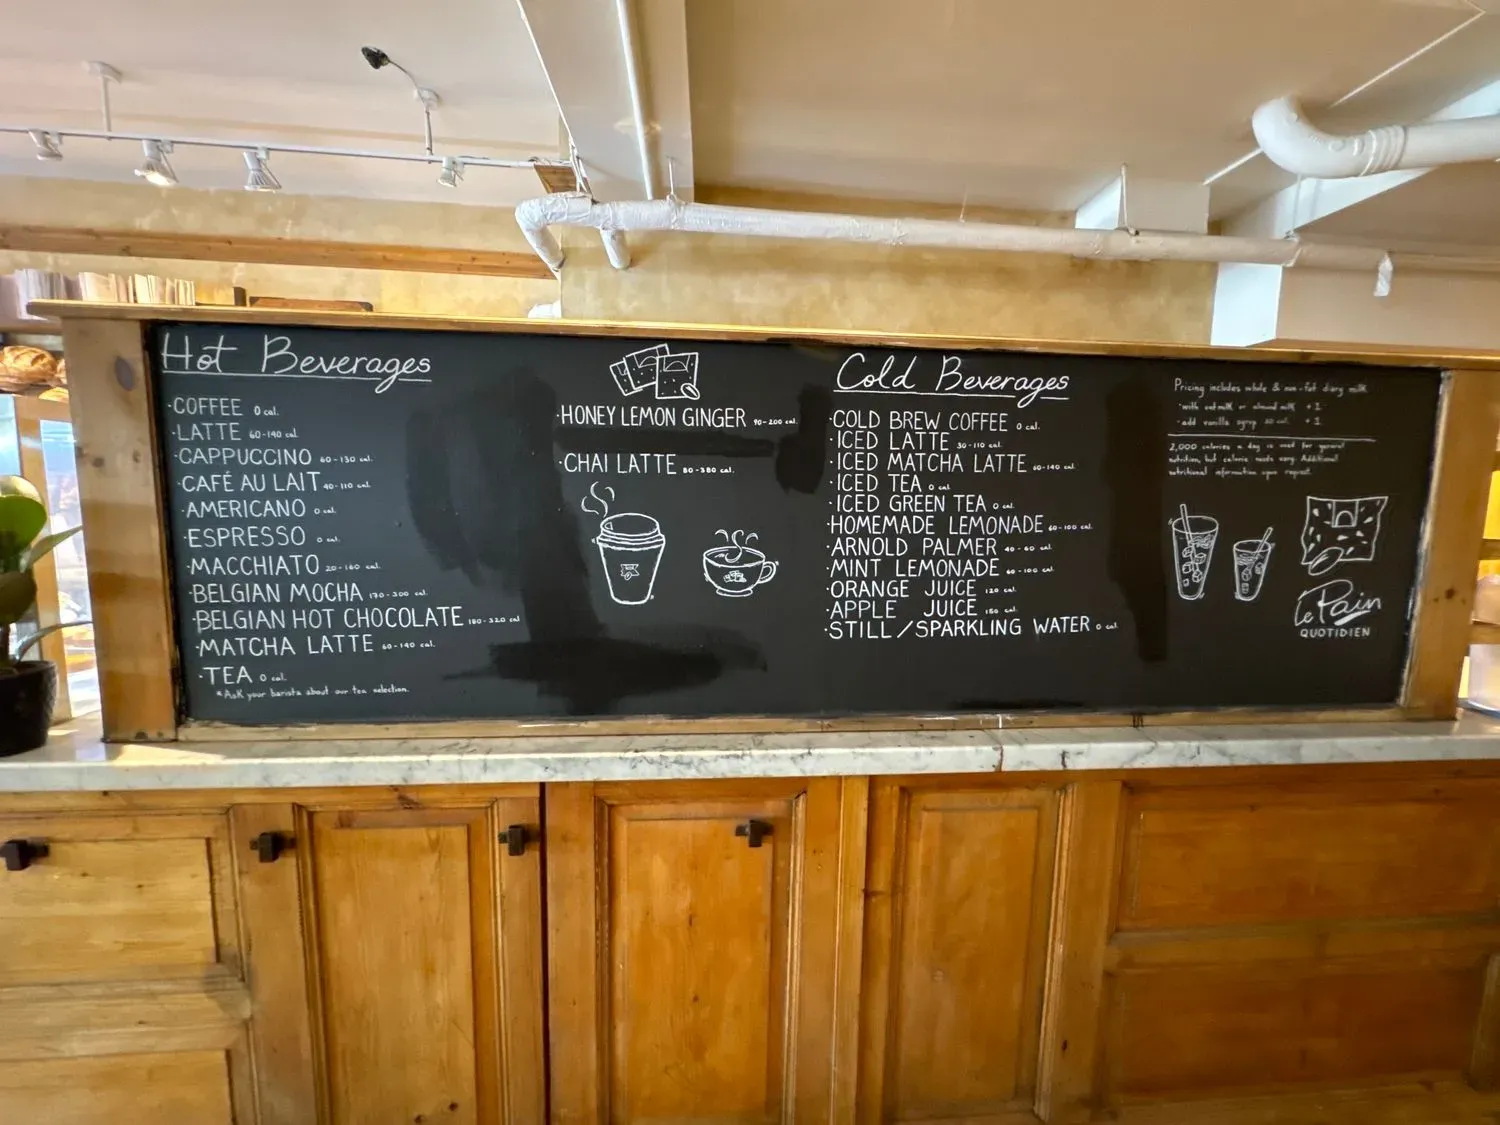 Hot Beverages
·COFFEE 0 cal.
·LATTE 60-140 cal.
·CAPPUCCINO 60-130 cal.
·CAFÉ AU LAIT 40-110 cal.
·AMERICANO 0 cal.
·ESPRESSO 0 cal.
·MACCHIATO 20-160 cal.
·BELGIAN MOCHA 170-300 cal.
·BELGIAN HOT CHOCOLATE 180-320 cal
·MATCHA LATTE 60-140 cal.
·TEA 0 cal.
*Ask your barista about our tea selection.
·HONEY LEMON GINGER 90-200 cal.
·CHAI LATTE 80-380 cal.
Cold Beverages
·COLD BREW COFFEE 0 cal.
·ICED LATTE 30-110 cal.
·ICED MATCHA LATTE 60-140 cal.
·ICED TEA 0 cal
·ICED GREEN TEA 0 cal.
·HOMEMADE LEMONADE 60-100 cal.
·ARNOLD PALMER 40-60 cal.
·MINT LEMONADE 60-100 cal.
·ORANGE JUICE 120 cal.
·APPLE JUICE cal.
·STILL/SPARKLING WATER 0 cal.
Pricing includes whole & non-fat diary milk
·with oatmilk or almond milk +1
·add vanilla syrup 20 cal. +1
2,000 calories a day is used for general
nutrition, but calorie needs vary. Additional
nutritional information upon request.
Le Pain
QUOTIDIEN